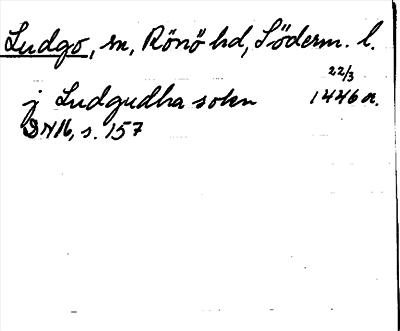 Ludgo, sn, Rönö hd, Söderm. l.
22/3
j Ludgudha sokn 1446 a.
SNM, s. 157